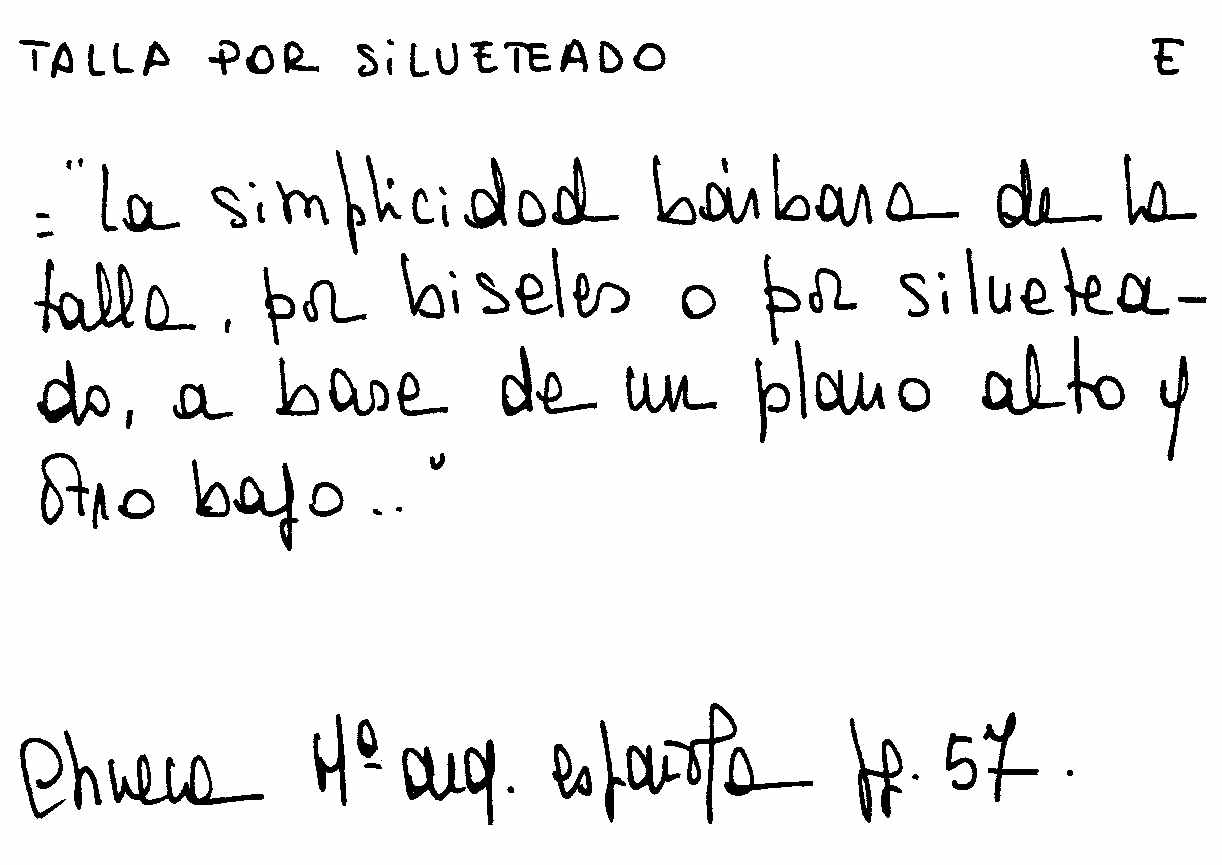 TALLA POR SILUETEADO E
= "La simplicidad bárbara de la
talla, por biseles o por siluetea-
do, a base de un plano alto y
otro bajo.."
Chueca Hª arq. española pg. 57.